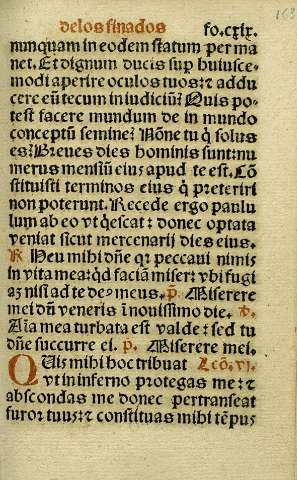 de los finados fo.cxix.
163
nunquam in eodem statum perma
net. Et dignum ducis sup̄ huiusce-
modi aperire oculos tuos: ⁊ addu
cere eū tecum in iudiciū? Quis po-
test facere mundum de in mundo
conceptū semine? Nōne tu q̄ solus
es? Breues dies hominis sunt: nu
merus mensiū eius apud te est. Cō
stituisti terminos eius q̄ preteriri
non poterunt. Recede ergo paulu
lum ab eo vt q̄escat: donec optata
veniat sicut mercenarij dies eius.
℟. Heu mihi dn̄e qꝛ peccaui nimis
in vita mea: qd̄ faciā miser: vbi fugi
aꝫ nisi ad te deꝰ meus. p̄. Miserere
mei dn̄ veneris ī nouissimo die. ℣.
Aīa mea turbata est valde: sed tu
dn̄e succurre ei. p̄. Miserere mei.
QUis mihi hoc tribuat Lcō. VI.
vt in inferno protegas me: ⁊
abscondas me donec pertranseat
furor tuus: ⁊ constituas mihi tēpus